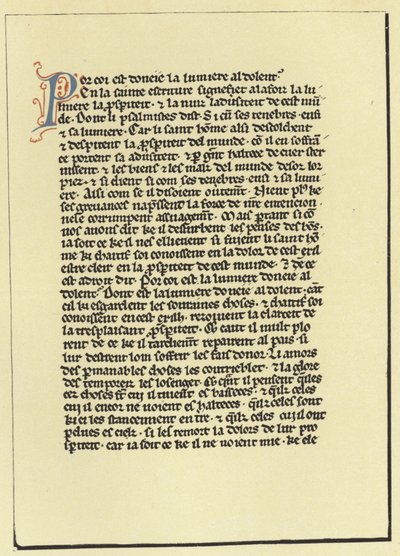 Por coi est doneie la lumiere al dolent.
En la sainte escriture signefiet a la foiz la lu-
miere la ꝓspiteit. & la nuit laduersiteit de cest mū
de. Dont li psalmistes dist. Si cū ses tenebres. ensi
& sa lumiere. Car li saint hōme alsi desco
& despitent la ꝓsperiteit del munde. cō il en soffrā
ce portent sa aduersiteit. & ꝑ haltece de cuer ster
nissent. & les biens & les malz del munde desoz lor
piez. & si dient si com ses tenebres. ensi & sa lumi
ere. Alsi com se il disoient Nient plꝰ ke
ses greuances napssent la force de nre entencion
ne se corrumpent assuagent. Mais si cō
nos auons dit ke il destorbent les penses des bōs.
ia soit ce ke il nes ellieuent si ē li saint hō
me ki chaitif soi conoissent en la dolor de cest exil
estre cleir en la ꝓspiteit de cest munde. & de ce
est a droit dit. Por coi est la lumiere doneie al
dolent. Dont est la lumiere doneie al dolent. cāt
cil ki esgardent les souraines choses. & chaitif soi
conoissent en cest exilh. rezoiuent la clarteit de
la trespassant ꝓspiteit. & cant il mult plo
rent de ce ke il tardiement repairent al pais. si
lur destrent lom soffrir les fais donor. Li amors
des permanables choses les contrieblet. & la glore
des temporeiz les losenget. & cꝫnt il pensent qͥles
cez choses sūt cui il tinent es basseces. & qͥlz celes
cui il encor ne voient es halteces. qͥlz celes sont
ki ci les stancennent en tre. & qͥlz celes cui il ont
perdues es cielz. si les remort la dolors de lur pro
spiteit. car ia soit ce ke il ne voient mie. ke ele